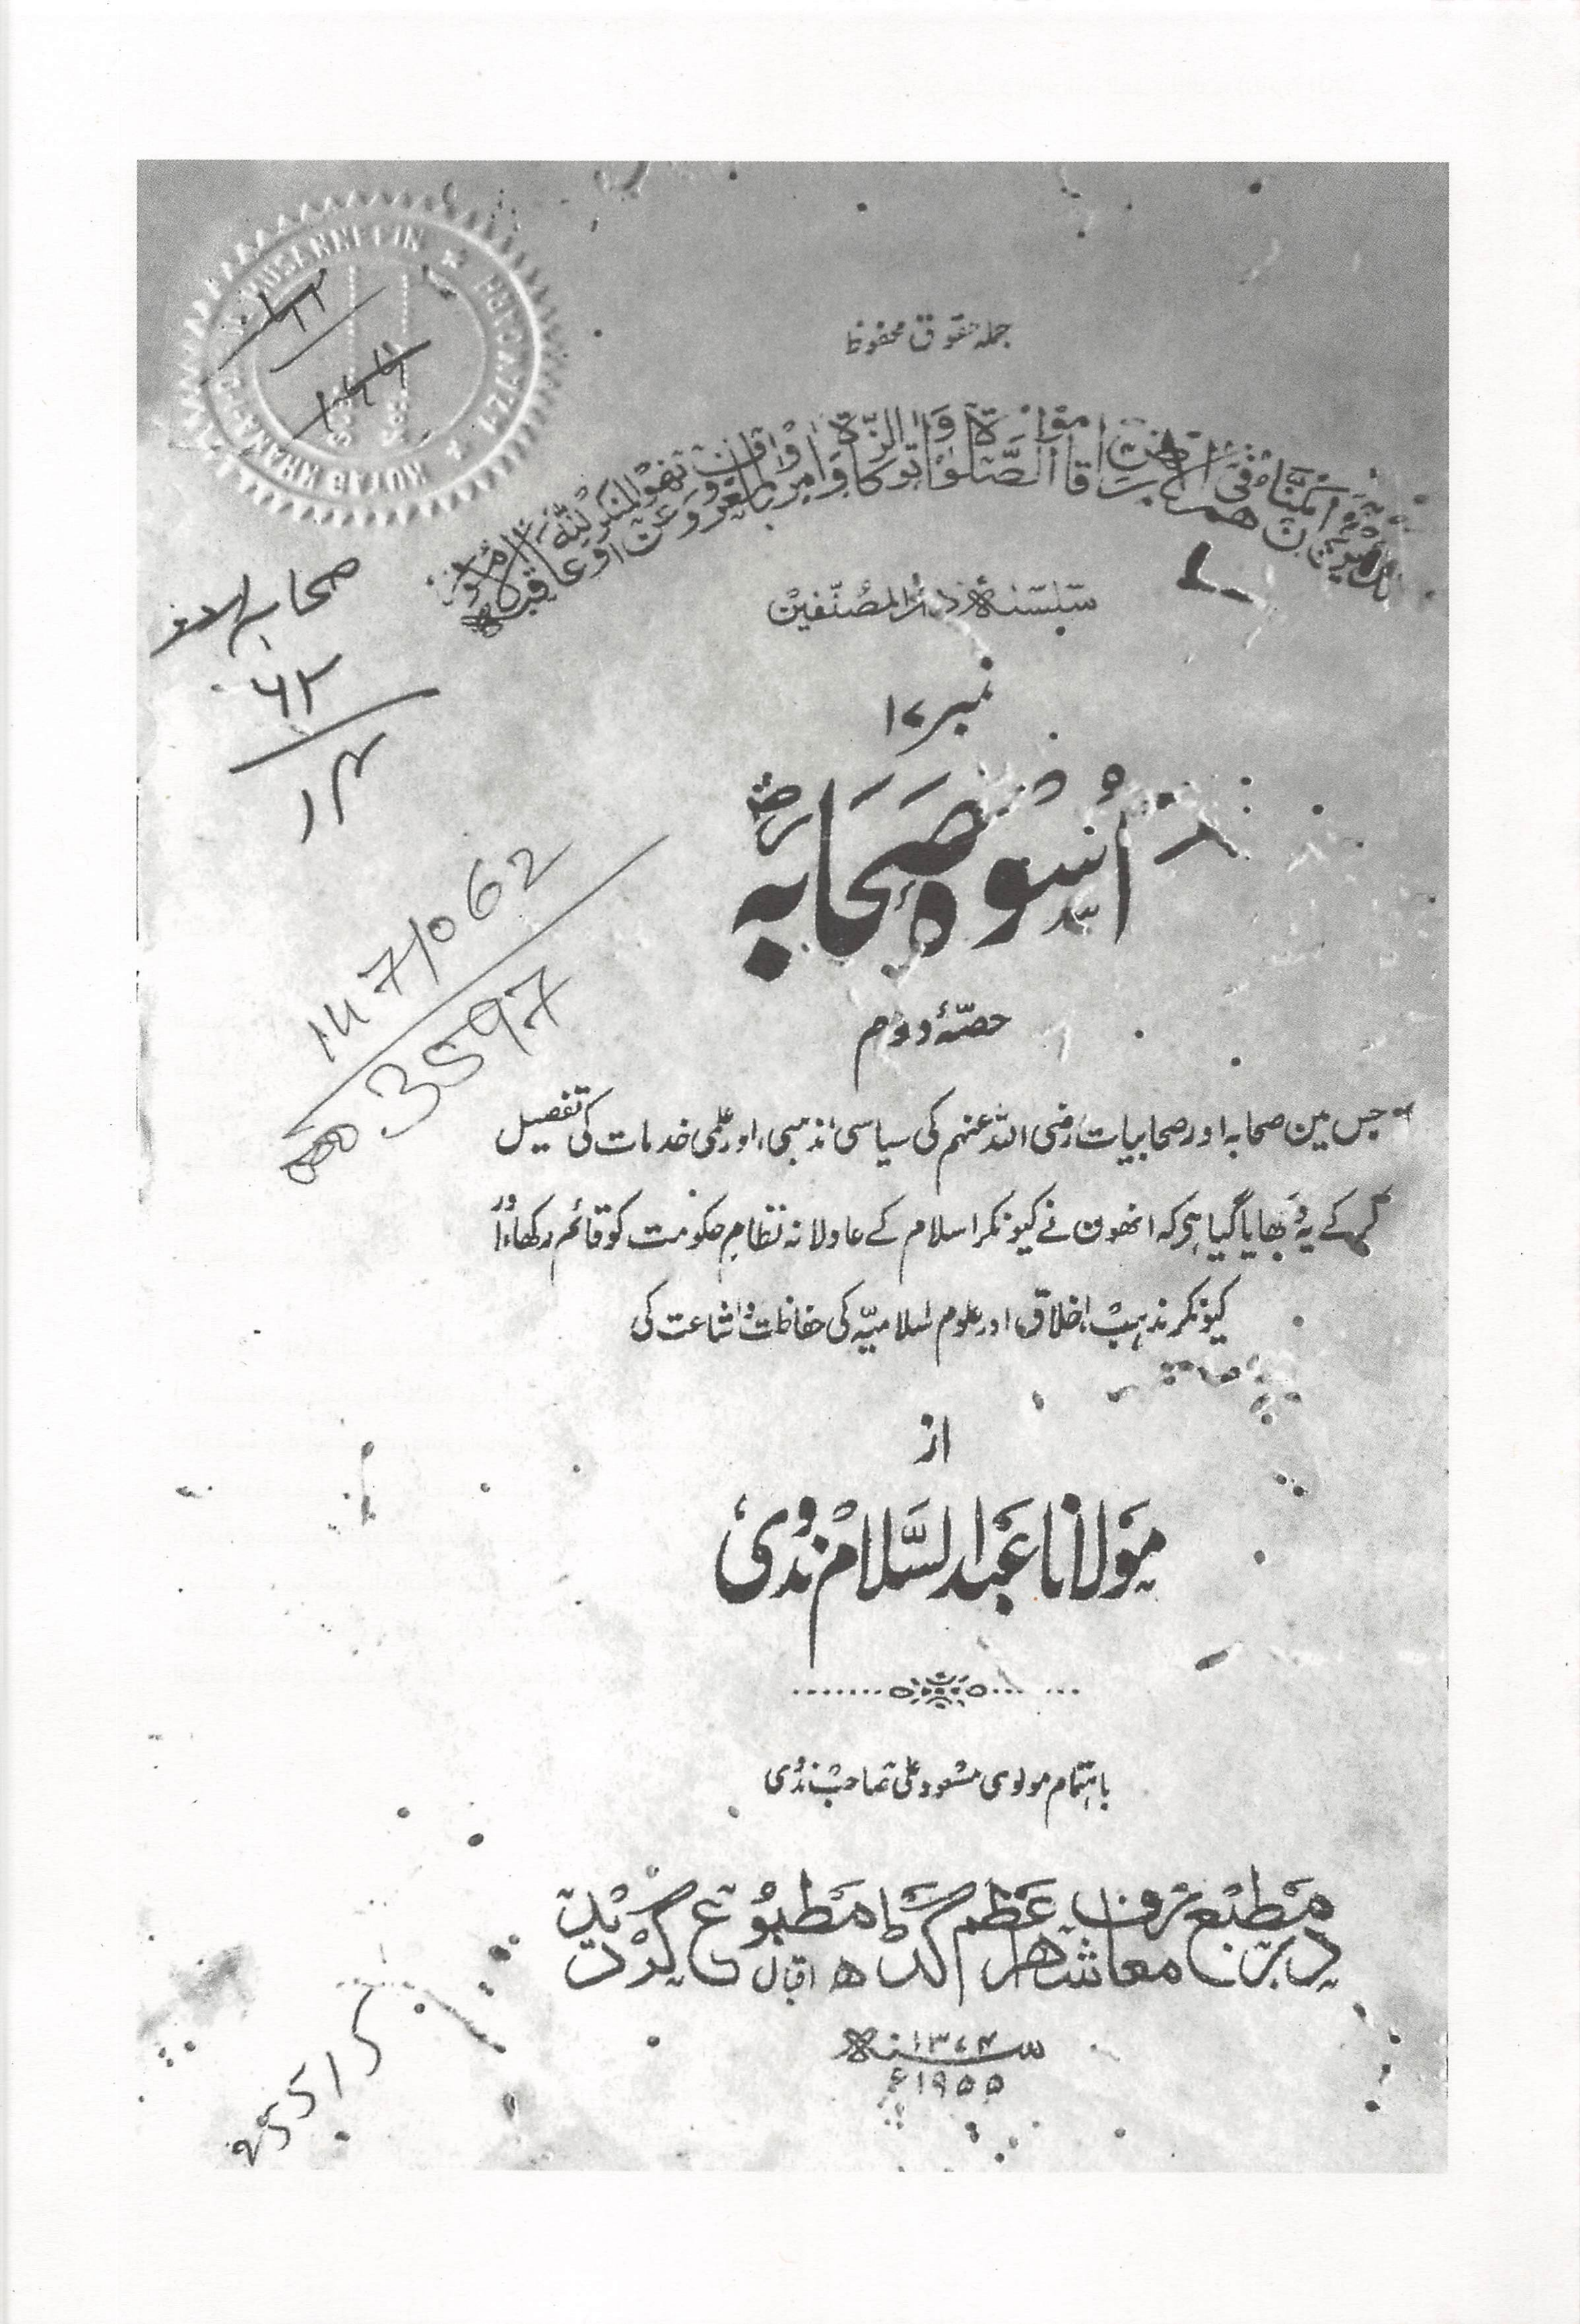 جملہ حقوق محفوظ
اَلَّذِیْنَ اِنْ مَّكَّنّٰهُمْ فِی الْاَرْضِ اَقَامُوا الصَّلٰوةَ وَاٰتَوُا الزَّكٰوةَ وَاَمَرُوْا بِالْمَعْرُوْفِ وَنَهَوْا عَنِ الْمُنْكَرِ وَلِلّٰهِ عَاقِبَةُ الْاُمُوْرِ
سلسلۂ دار المصنفین
نمبر ۱۷
اُسوۂ صَحَابہ رض
حصّۂ دوم
جس مین صحابہ اور صحابیات رضی اللہ عنہم کی سیاسی، مذہبی، اور علمی خدمات کی تفصیل
کرکے یہ دکھایا گیا ہی کہ انھون نے کیونکر اسلام کے عادلانہ نظامِ حکومت کو قائم رکھا، اور
کیونکر مذہب، اخلاق، اور علوم اسلامیہ کی حفاظت و اشاعت کی
از
مولانا عبد السلام ندوی
باہتمام مولوی مسعود علی صاحب ندوی
در مطبع معارف شہر اعظم گڈھ مطبوع گردید
۱۳۷۴ سنہ ھ
۱۹۵۵ ء
MUSANNEFIN
KUTAB KHANA
۶۲
۱۴
147/062
3597
25515